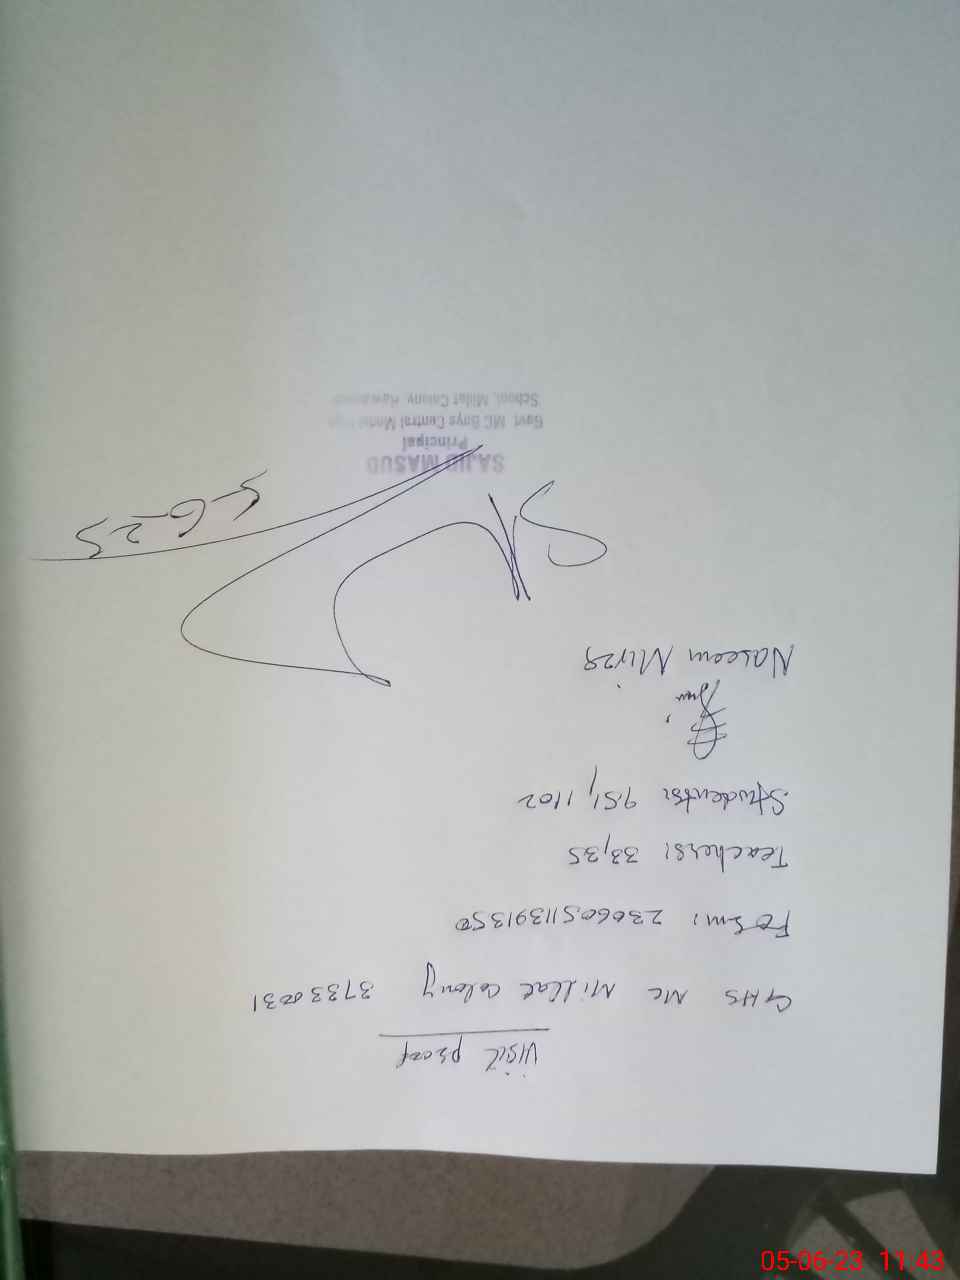 Visit proof
GHS MC Millat Colony 37330031
FoSm: 23060511391350
Teachers: 33,35
Students: 951,1102
Naseem Mirza
5-6-23
SAJID MASUD
Principal
Govt. MC Boys Central Model High
School, Millat Colony, Rawalpindi
05-06-23 11:43